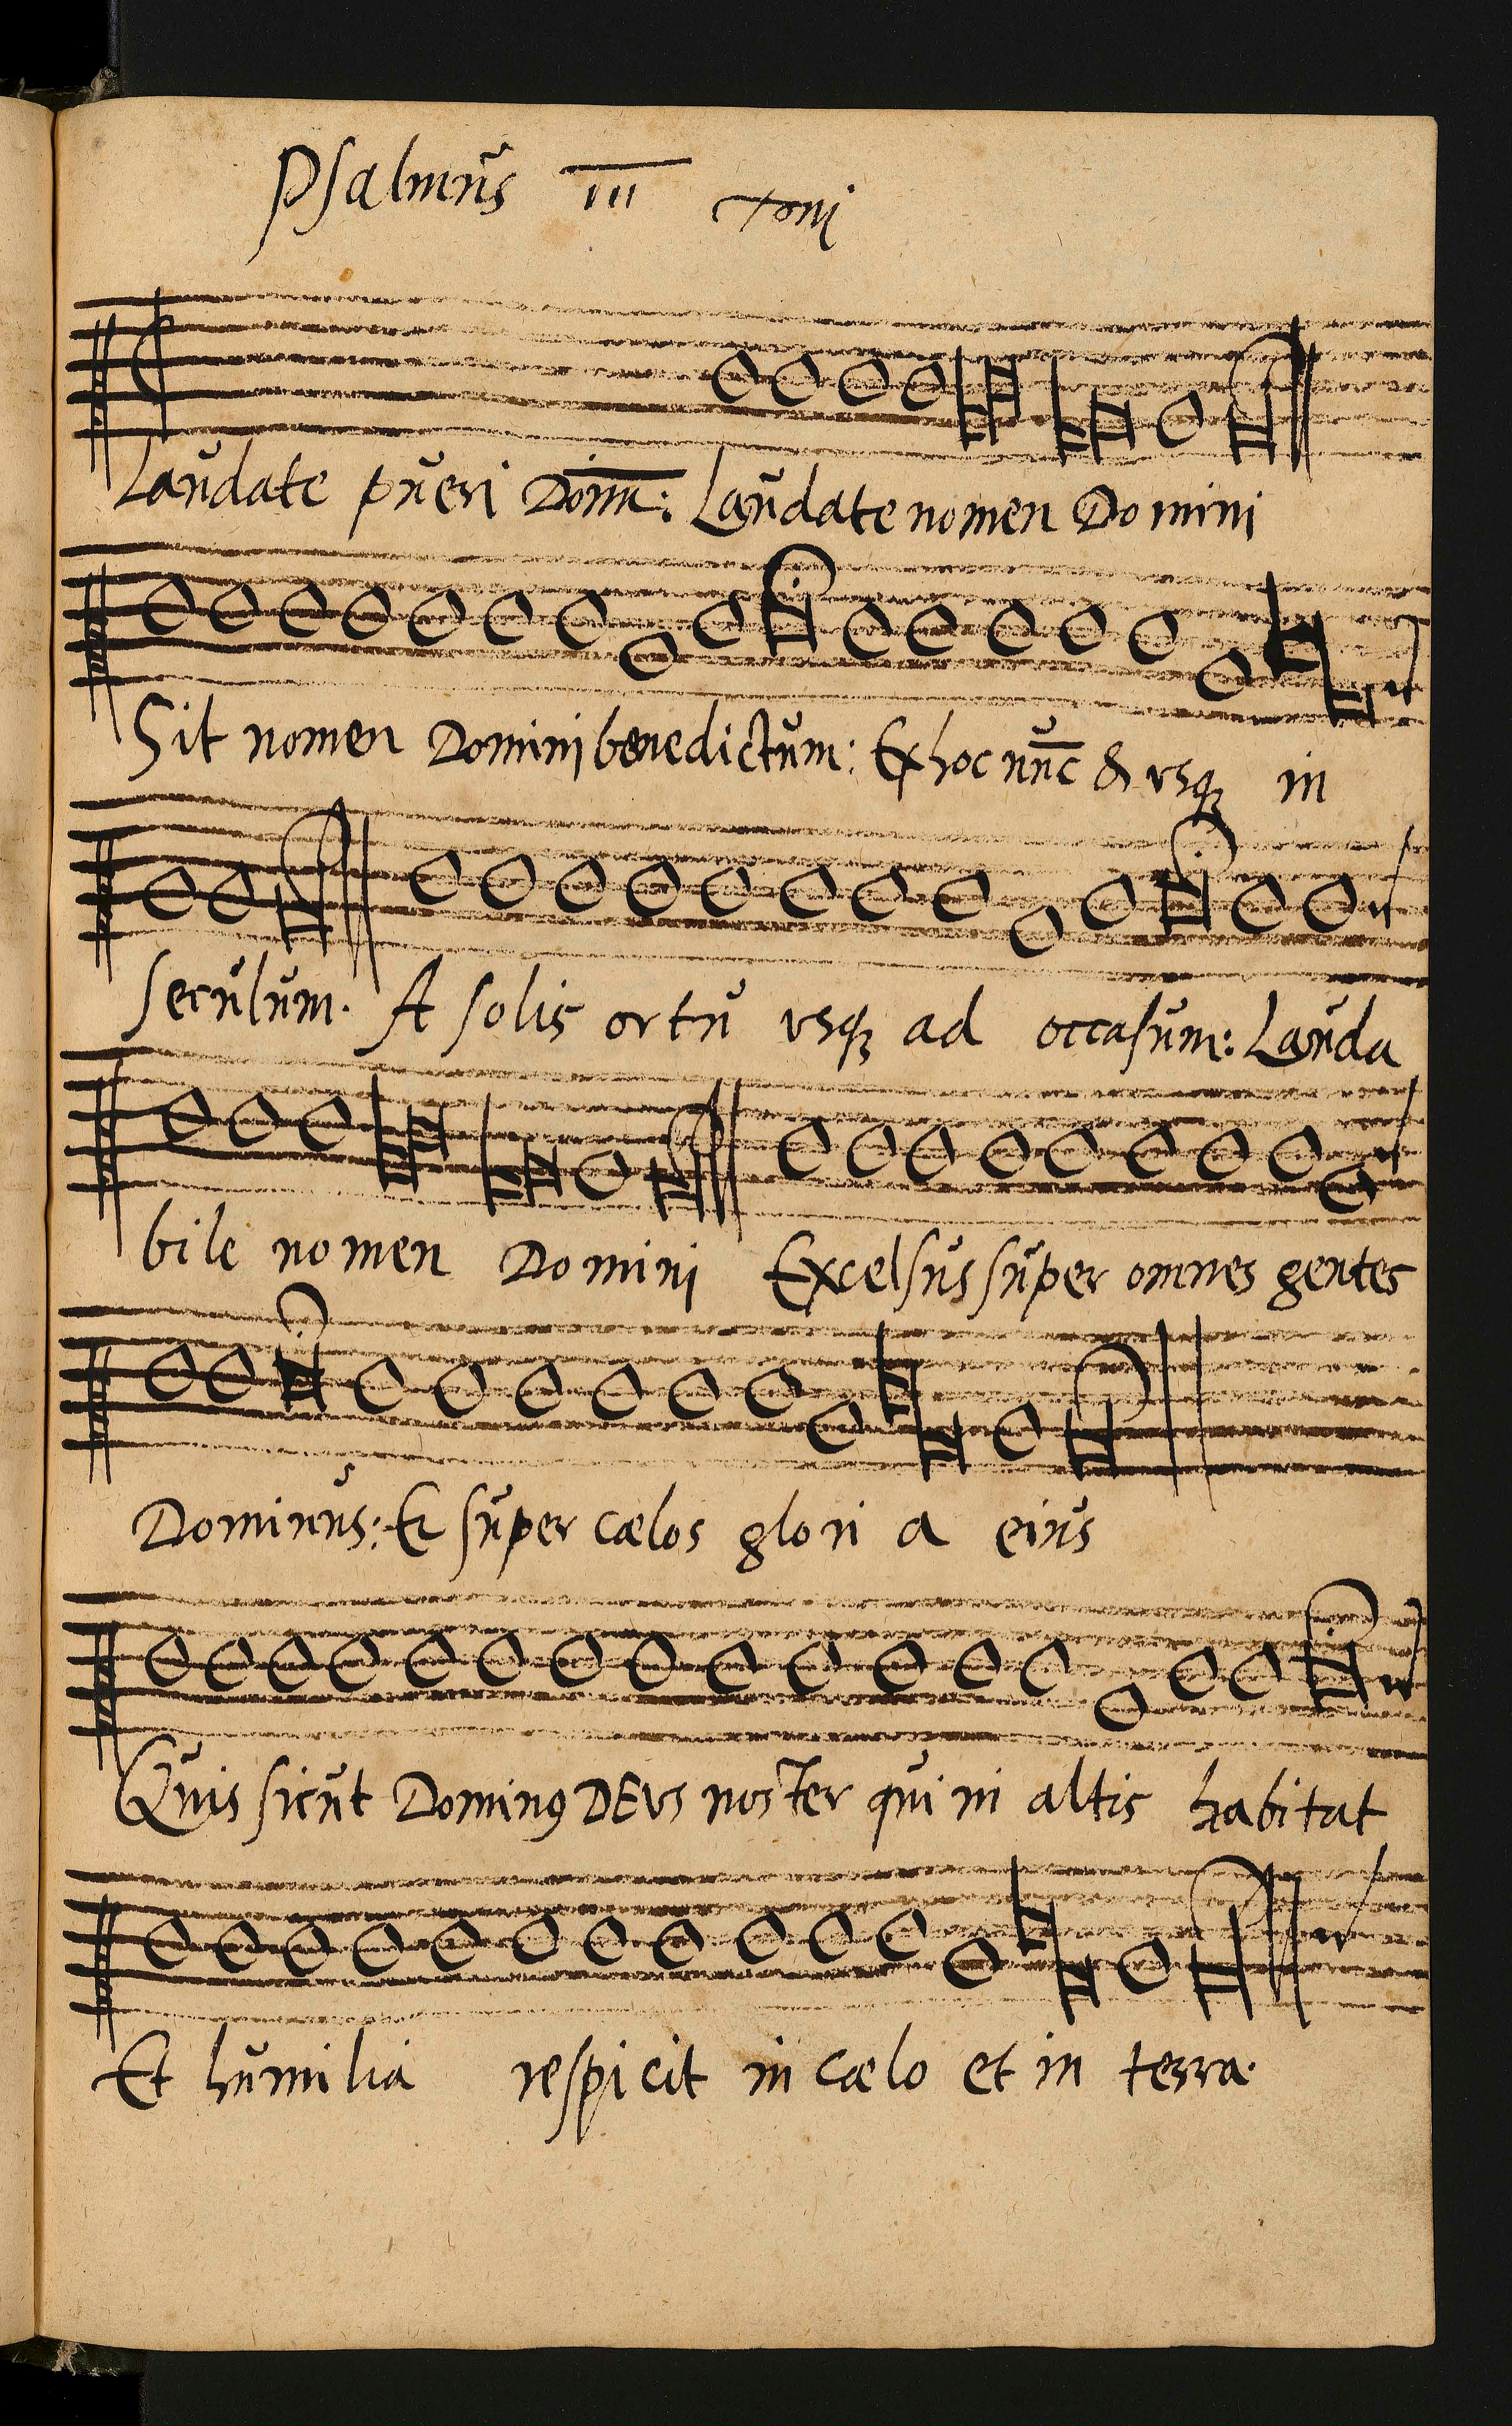 Psalmus III Toni
Laudate pueri Dom̄: Laudate nomen Domini
Sit nomen Domini benedictum: Ex hoc nūc & vsqꝫ in
seculum. A solis ortu vsqꝫ ad occasum: Lauda
bile nomen Domini Excelsus super omnes gentes
Dominus: Et super cælos glori a eius
Quis sicut Dominꝰ DEVS noster qui in altis habitat
Et humilia respicit in cælo et in terra.